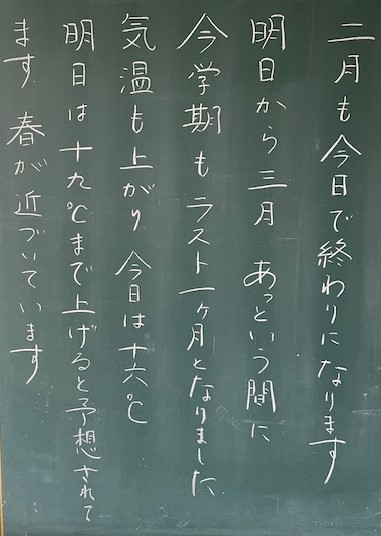 二月も今日で終わりになります
明日から三月 あっという間に
今学期もラスト一ヶ月となりました
気温も上がり 今日は十六℃
明日は十九℃まで上げると予想されて
ます 春が近づいています